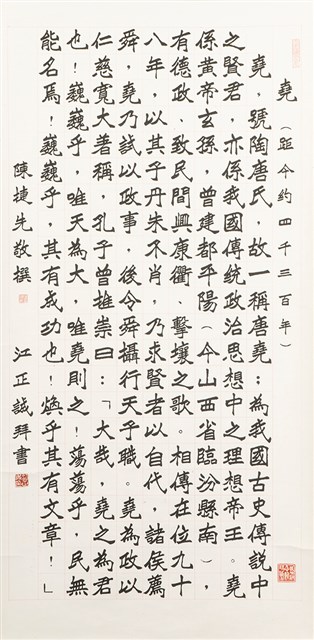 堯（距今約四千三百年）
堯，號陶唐氏，故一稱唐堯；為我國古史傳說中
之賢君，亦係我國傳統政治思想中之理想帝王。堯
係黃帝玄孫，曾建都平陽（今山西省臨汾縣南），
有德政，致民間興康衢、擊壤之歌。相傳在位九十
八年，以其子丹朱不肖，乃求賢者以自代，諸侯薦
舜，堯乃試以政事，後令舜攝行天子職。堯為政以
仁慈寬大著稱，孔子曾推崇曰：「大哉　堯之為君
也！巍巍乎，唯天為大，唯堯則之！蕩蕩乎，民無
能名焉！巍巍乎，其有成功也！煥乎其有文章！」
陳捷先敬撰　江正誠拜書